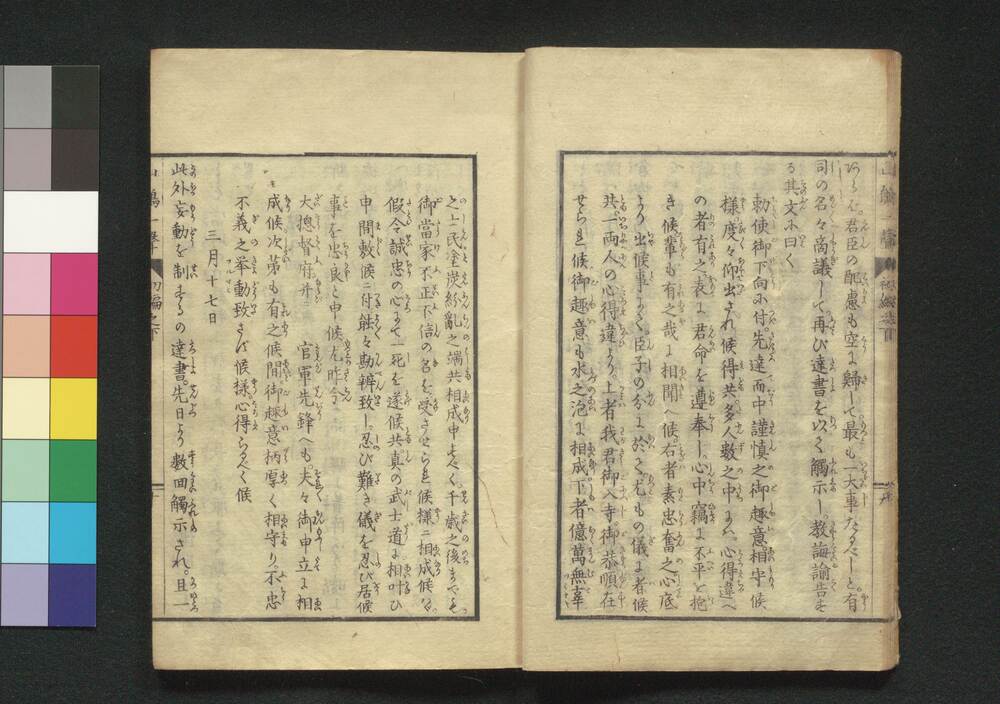 あらん。君臣の配慮も空に歸して最も一大事なるべしと。有
司の各々商議して再び達書を以く觸示し。教誨諭告す
る其文に曰く
勅使御下向に付。先達而中謹慎之御趣意相守候
様度々仰出され候得共。多人数之中には。心得違へ
の者有之。表は君命を遵奉し。心中竊に不平を抱
き候輩も有之哉に相聞へ候。右者素忠奮之心底
より出候事にて。臣子の分に於て。尤もの儀に者候
共。一両人の心得違より。上者我君御入寺。御恭順在
せられ候御趣意も水之泡に相成。下者億萬無辜
之士民塗炭紛亂之端共相成申すべく。千歳之後までも。
御當家不正不信の名を受させられ候様ニ相成候は。
假令誠忠の心にて一死を遂候共。真の武士道に相叶ひ
申間敷候ニ付。能々勘辨致し。忍び難き儀を忍び居候
事を忠良と申候。尤昨今
大總督府并ニ 官軍先鋒へも。夫々御申立に相
成候次第も有之候間。御趣意柄厚く相守り。不忠
不義之挙動致さゞ候様。心得らべく候
三月十七日
此外妄動を制するの達書。先日より数回觸示され。且一